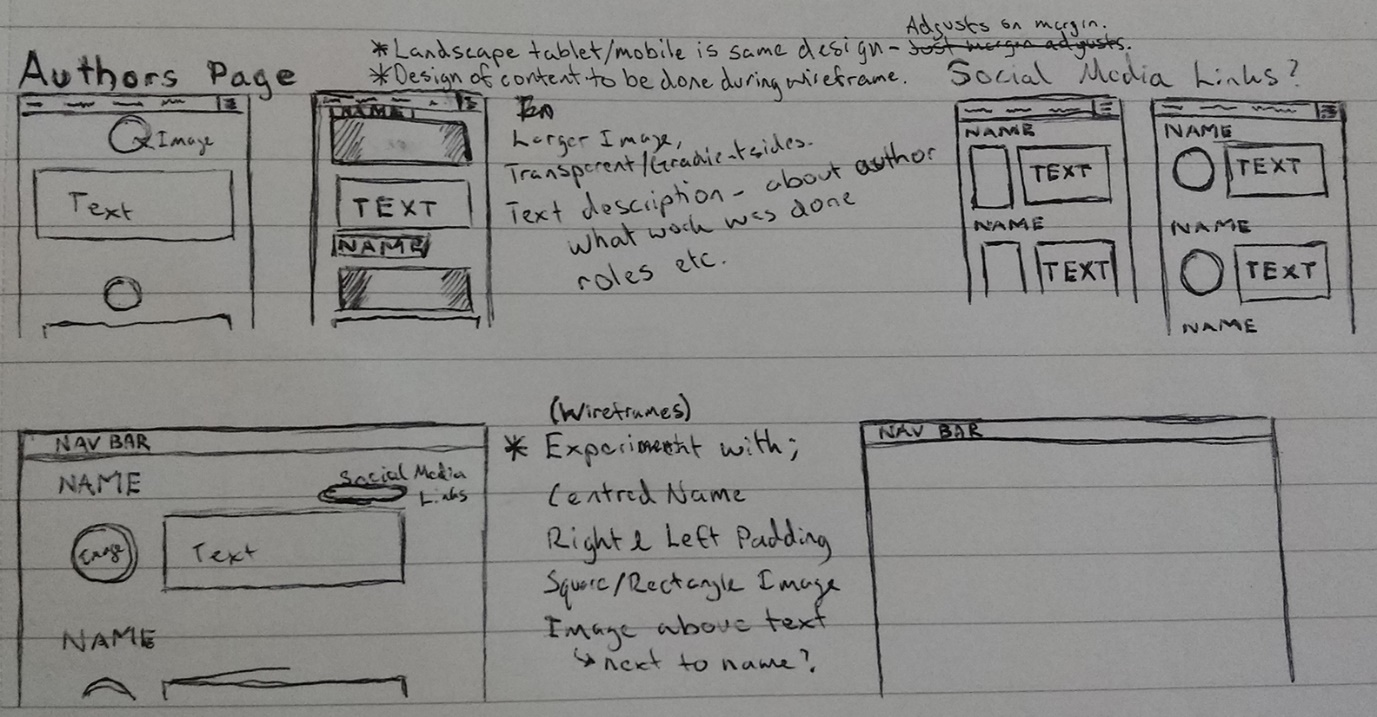 Adjusts on margin.
*Landscape tablet/mobile is same design - Just margin adjusts.
Authors Page
*Design of content to be done during wireframe.
Social Media Links?
Image
Text
NAME
TEXT
NAME
Larger Image,
Transparent/Gradient sides.
Text description - about author
what work was done
roles etc.
NAME
TEXT
NAME
TEXT
NAME
TEXT
NAME
TEXT
NAME
NAV BAR
NAME
Social Media
Links
Image
Text
NAME
(Wireframes)
* Experiment with;
Centred Name
Right & Left Padding
Square/Rectangle Image
Image above text
↳ next to name?
NAV BAR